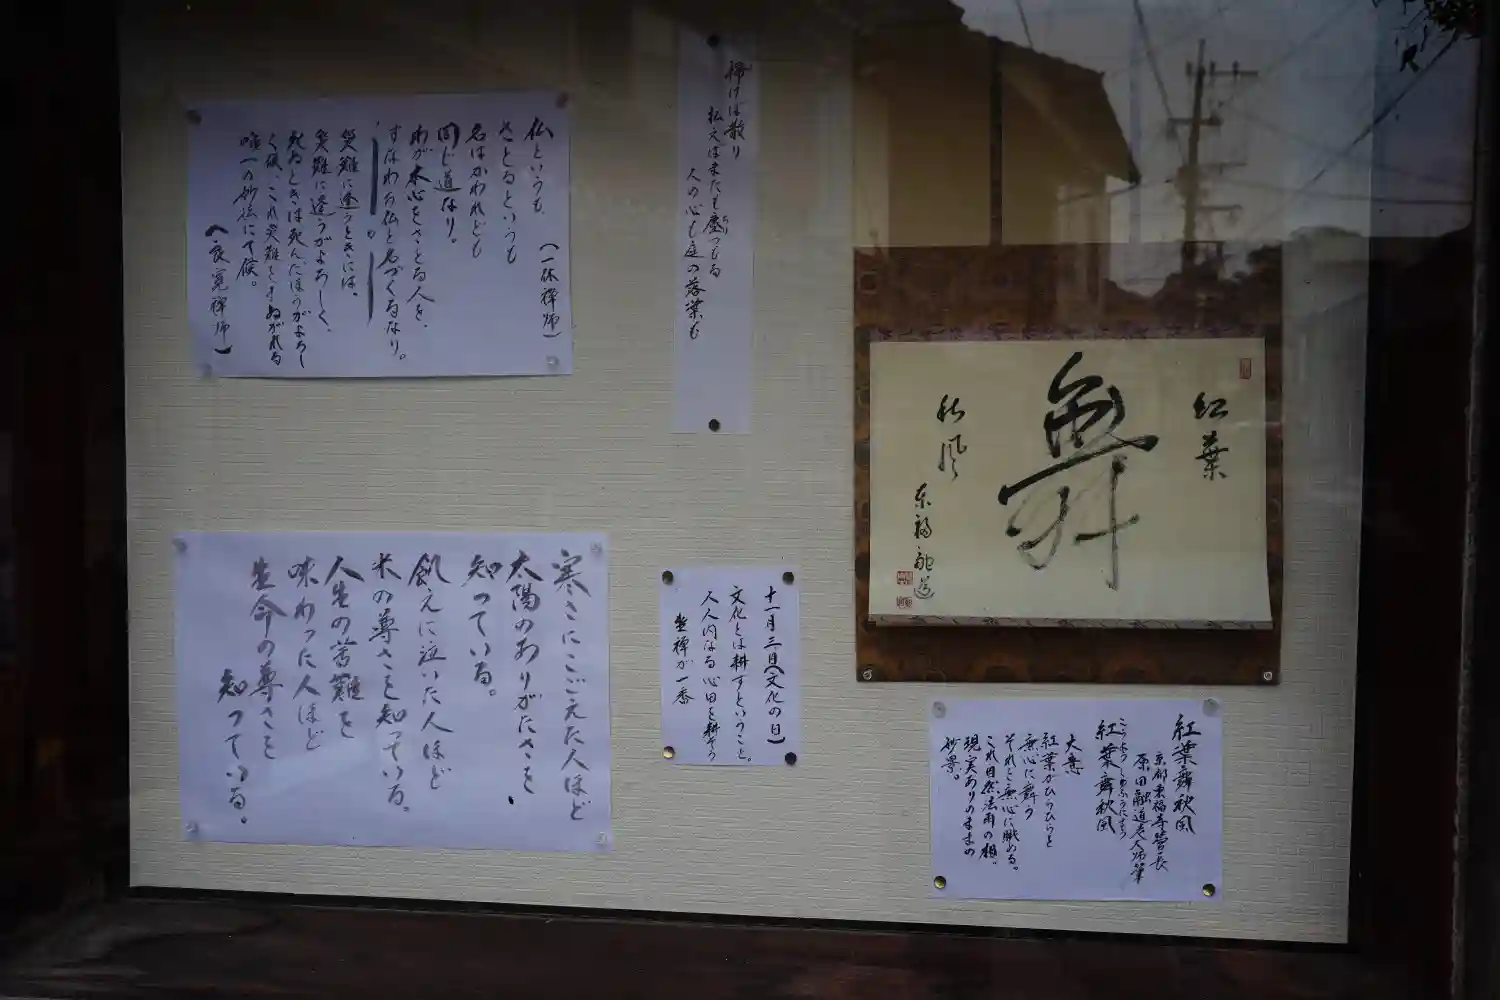 仏というも
さとるというも
名はかわれども
同じ道なり。
わが本心をさとる人を、
すなわち仏と名づくるなり。
(一休禅師)
災難に逢うときには、
災難に逢うがよろしく、
死ぬときは死んだほうがよろし
く候、これ災難をまぬがれる
唯一の妙法にて候。
(良寛禅師)
掃けば散り
払えばまたも塵つもる
ちり
人の心も庭の落葉も
紅葉
舞
秋風
東福融道
寒さにこごえた人ほど
太陽のありがたさを
知っている。
飢えに泣いた人ほど
米の尊さを知っている。
人生の苦難を
味わった人ほど
生命の尊さを
知っている。
十一月三日(文化の日)
文化とは耕すということ。
人人内なる心田を耕そう
坐禅が一番
紅葉舞秋風
京都東福寺管長
原田融道老大師筆
紅葉舞秋風
こうようしゅうふうにまう
大意
紅葉がひらひらと
無心に舞う
それを無心に眺める。
これ自然法爾の相。
現実ありのままの
妙景。